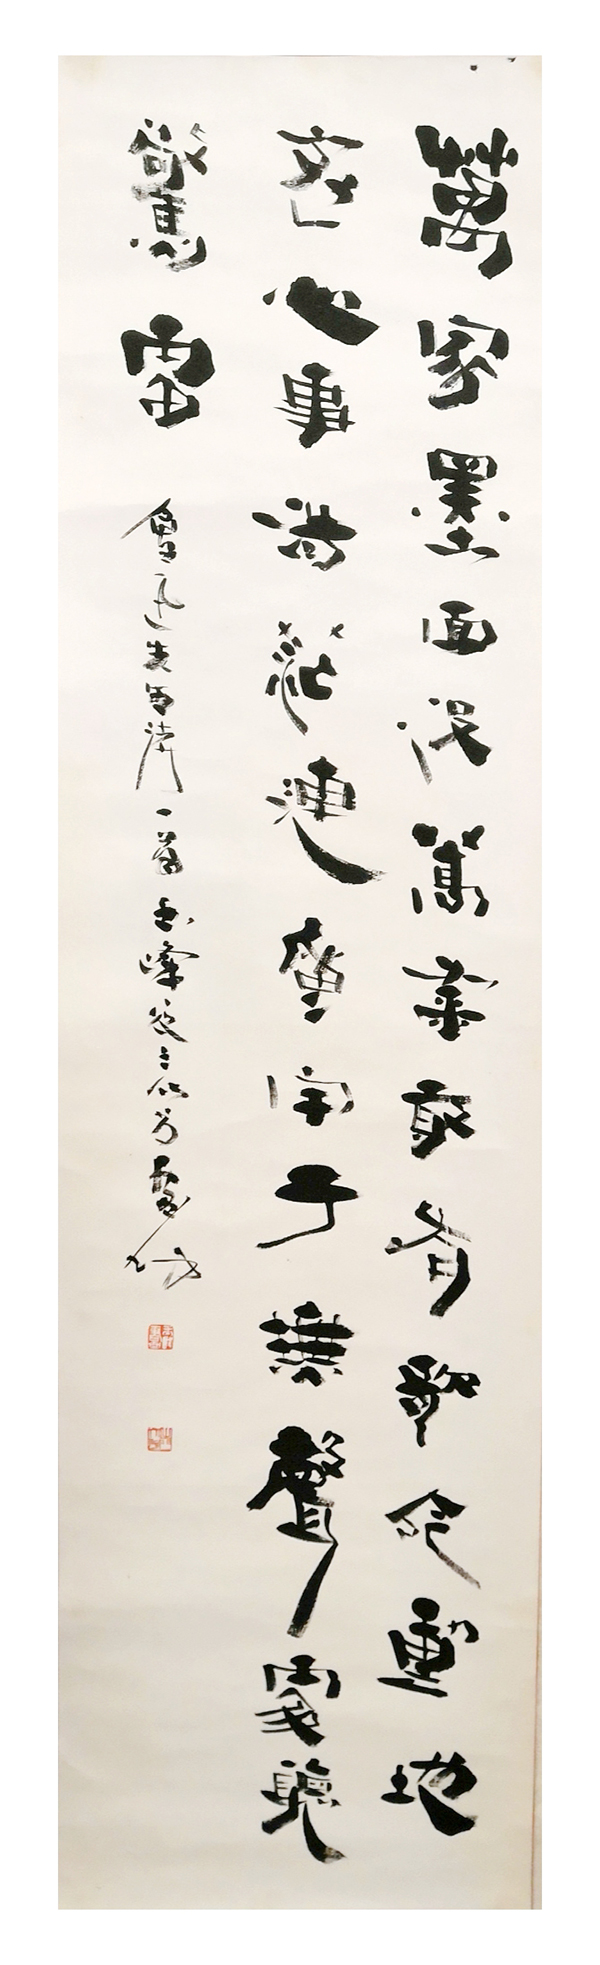 萬家墨面沒蒿萊敢有歌吟動地
哀心事浩茫連廣宇于無聲處聽
驚雷
魯迅先生詩一首